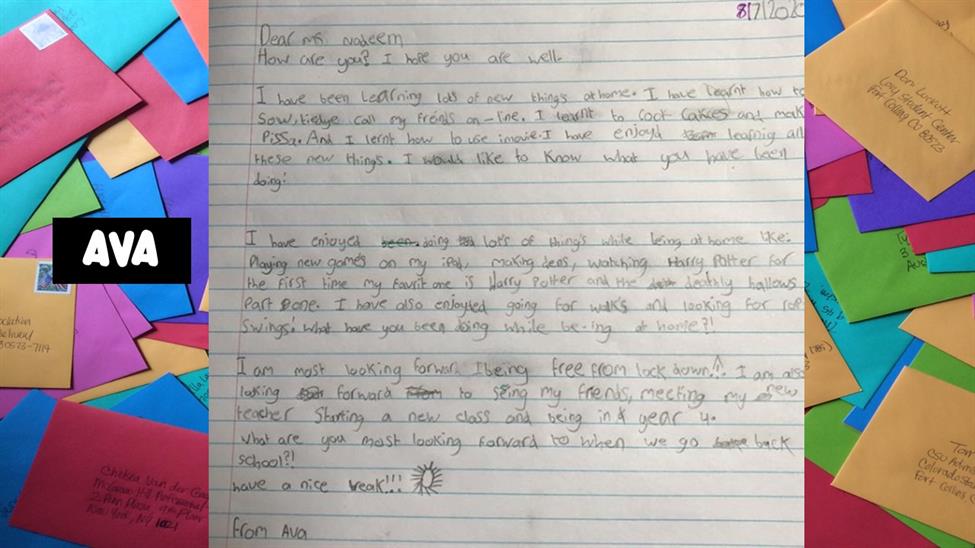 8/7/202
Dear Ms Nadeem
How are you? I hope you are well.
I have been Learning lots of new things at home. I have learnt how to
sow, tiedye call my friends on-line. I learnt to cook cakes and mak
Pissa. And I lernt how to use imovie. I have enjoyd learnig all
these new things. I would like to know what you have been
doing!
I have enjoyed been doing lots of things while being at home like:
Playing new games on my iPad, making dens, watching Harry Potter for
the first time my favrit one is Harry Potter and the deathly hallows
Part one. I have also enjoyted going for walks and looking for rope
swings. what have you been doing while be-ing at home?!
I am most looking forward being free from lock down!! I am also
looking forward to seing my friends, meeting my new
teacher starting a new class and being in year 4.
what are you most looking forward to when we go back
school?!
have a nice break!!!
from Ava
AVA
Don Luckett
Lory Student Center
Fort Collins CO 80523
80523-7114
Chelsea Van der Gaag
2 Penn Plaza, 9th Floor
New York, NY
Tom
CSU Admi
Colorado Sta
Fort Collins, C